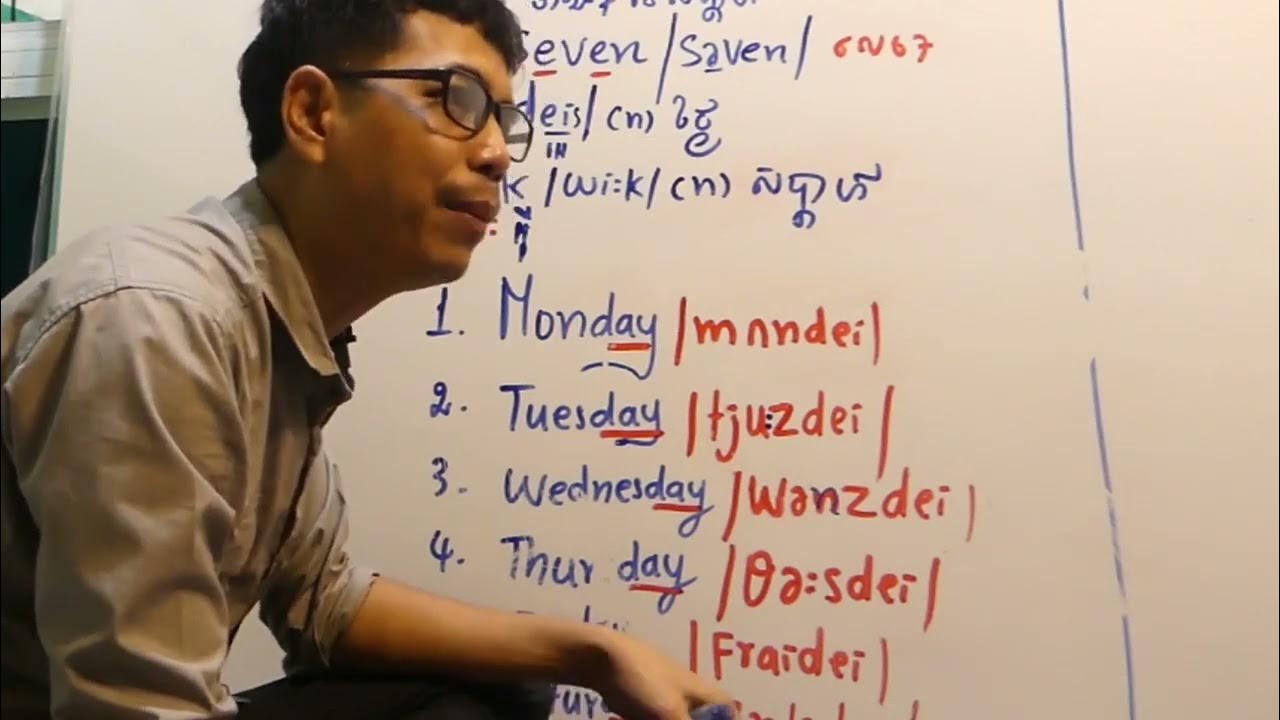 even /səven/ លេខ៧
deis/ (n) ថ្ងៃ
k /wi:k/ (n) សប្តាហ៍
1. Monday /mʌndei/
2. Tuesday /tju:zdei/
3. Wednesday /wənzdei/
4. Thur day /θə:sdei/
/Fraidei/